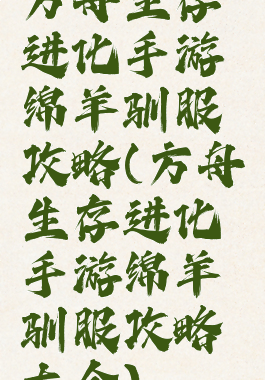 方舟生存
进化手游
绵羊驯服
攻略(方舟
生存进化
手游绵羊
驯服攻略
大全)